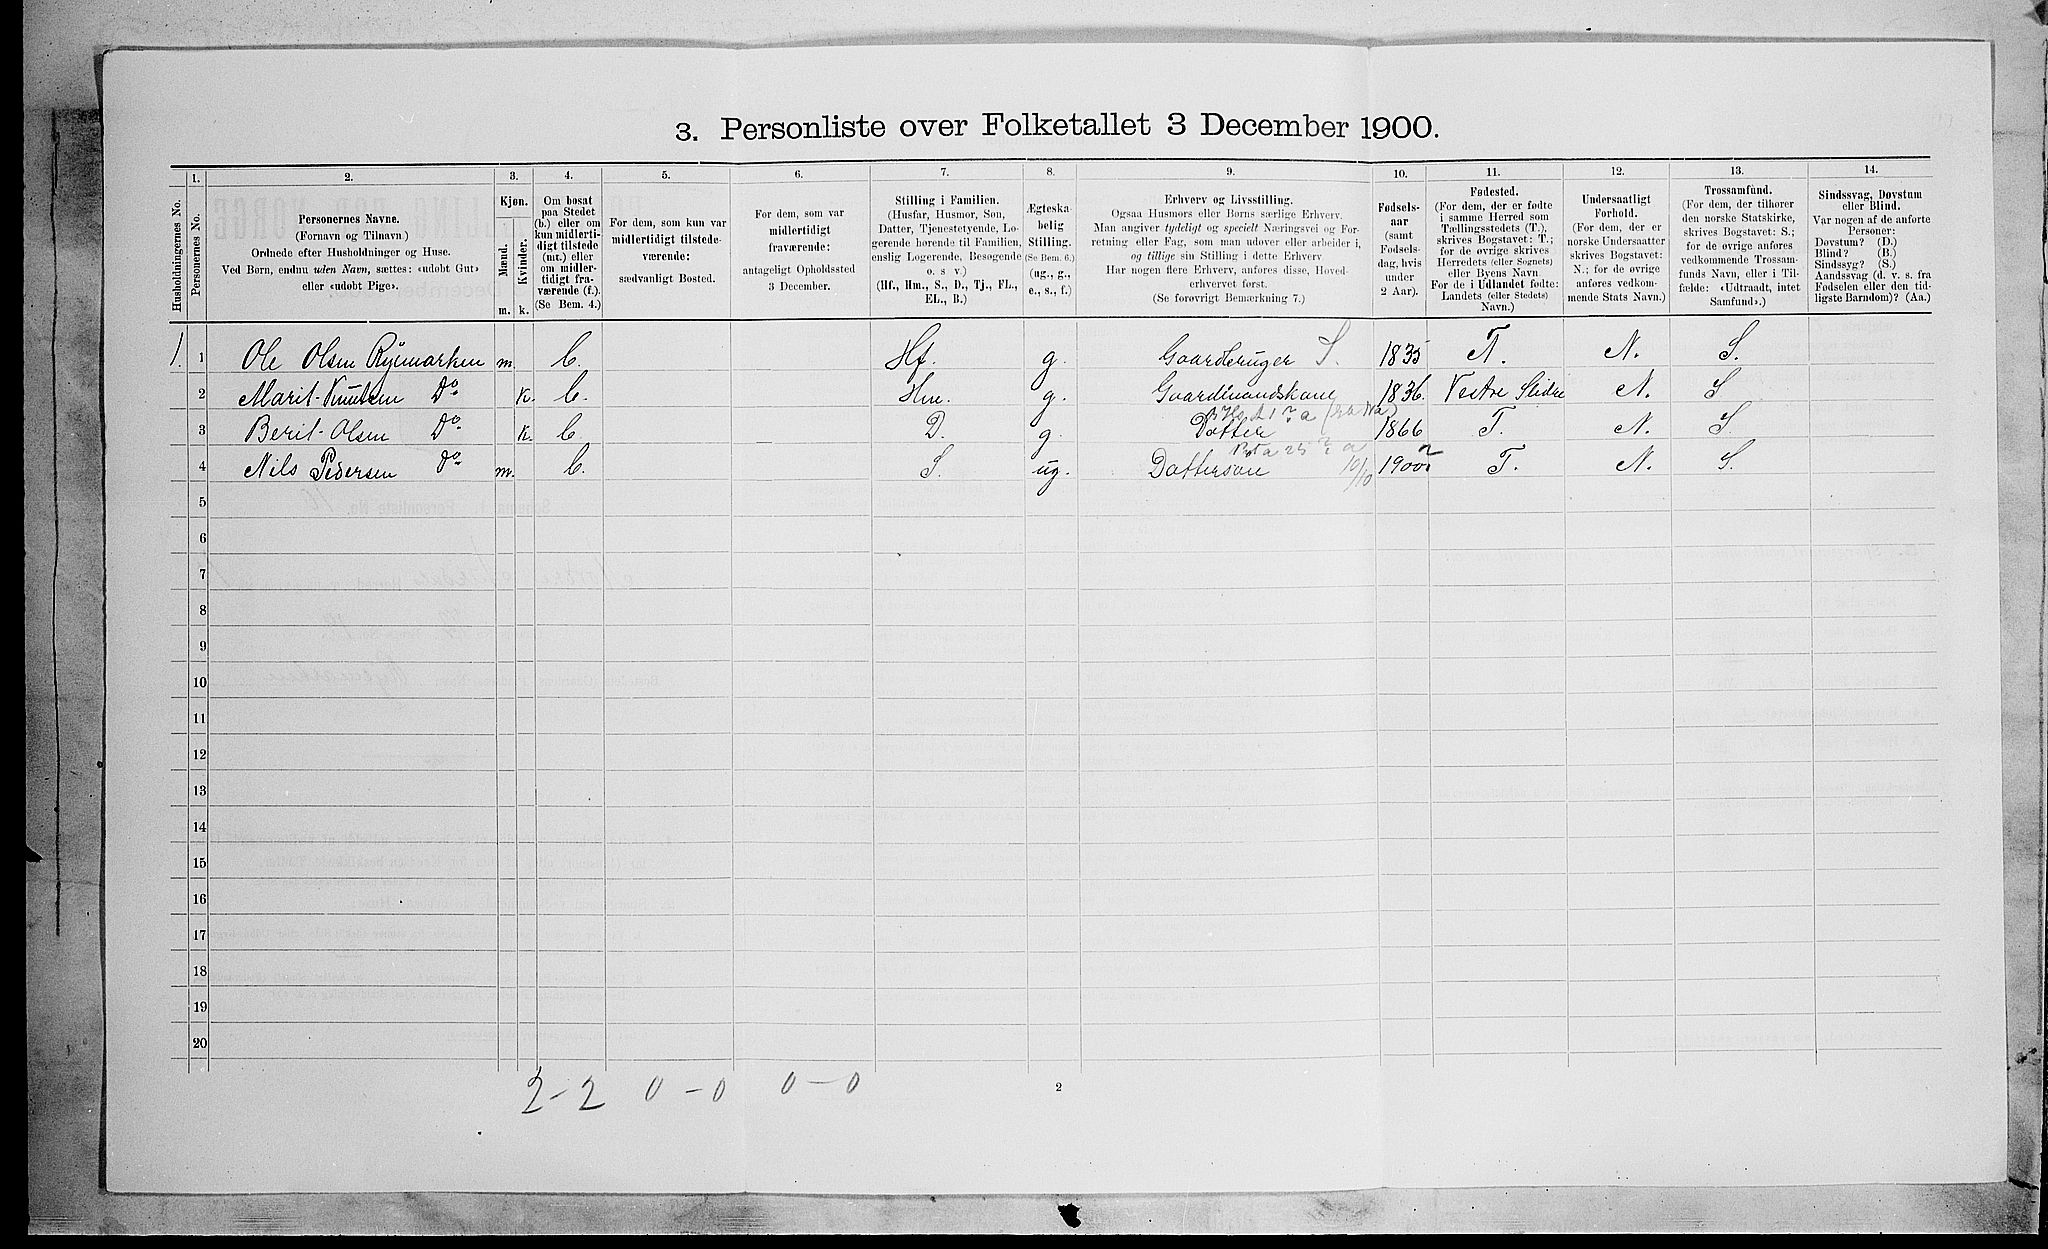 3. Personliste over Folketallet 3 December 1900.
Husholdningernes No.
1.
Personernes No.
2.
Personernes Navne.
(Fornavn og Tilnavn.)
Ordnede efter Husholdninger og Huse.
Ved Børn, endnu uden Navn, sættes: «udøbt Gut»
eller «udøbt Pige».
3.
Kjøn.
Mænd.
Kvinder.
m. k.
4.
Om bosat
paa Stedet
(b.) eller om
kun midlerti-
digt tilstede
(mt.) eller
om midler-
tidigt fra-
værende (f.).
(Se Bem. 4.)
5.
For dem, som kun var
midlertidigt tilstede-
værende:
sædvanligt Bosted.
6.
For dem, som var
midlertidigt
fraværende:
antageligt Opholdssted
3 December.
7.
Stilling i Familien.
(Husfar, Husmor, Søn,
Datter, Tjenestetyende, Lo-
gerende hørende til Familien,
enslig Logerende, Besøgende
o. s v.)
(Hf., Hm., S., D., Tj., FL.,
EL., B.)
8.
Ægteska-
belig
Stilling.
(Se Bem. 6.)
(ug., g.,
e., s., f.)
9.
Erhverv og Livsstilling.
Ogsaa Husmors eller Børns særlige Erhverv.
Man angiver tydeligt og specielt Næringsvei og For-
retning eller Fag, som man udøver eller arbeider i,
og tillige sin Stilling i dette Erhverv.
Har nogen flere Erhverv, anføres disse, Hoved-
erhvervet først.
(Se forøvrigt Bemærkning 7.)
10.
Fødsels-
aar
(samt
Fødsels-
dag, hvis
under
2 Aar).
11.
Fødested.
(For dem, der er fødte
i samme Herred som
Tællingsstedets (T.),
skrives Bogstavet: T.;
for de øvrige skrives
Herredets (eller Sognets)
eller Byens Navn
For de i Udlandet fødte:
Landets (eller Stedets)
Navn.)
12.
Undersaatligt
Forhold.
(For dem, der er
norske Undersaatter
skrives Bogstavet:
N.; for de øvrige
anføres vedkom-
mende Stats Navn.)
13.
Trossamfund.
(For dem, der tilhører
den norske Statskirke,
skrives Bogstavet: S.;
for de øvrige anføres
vedkommende Trossam-
funds Navn, eller i Til-
fælde: «Udtraadt, intet
Samfund».)
14.
Sindssvag, Døvstum
eller Blind.
Var nogen af de anførte
Personer:
Døvstum? (D.)
Blind? (B.)
Sindssyg? (S.)
Aandssvag (d. v. s. fra
Fødselen eller den tid-
ligste Barndom)? (Aa.)
1. 1 Ole Olsen Ryemarken m. b. Hf. g. Gaardbruger S. 1835 T. N. S.
2 Marit Knutsen Do k. b. Hm. g. Gaardmandskone 1836. Vestre Slidre N. S
3 Berit Olsen Do k. b D. g. Datter 1866 T. N. S.
4 Nils Pedersen Do m. b. S. ug. Dattersøn 10/10 1900 T. N. S.
5
6
7
8
9
10
11
12
13
14
15
16
17
18
19
20
2-2 0-0 0-0
2